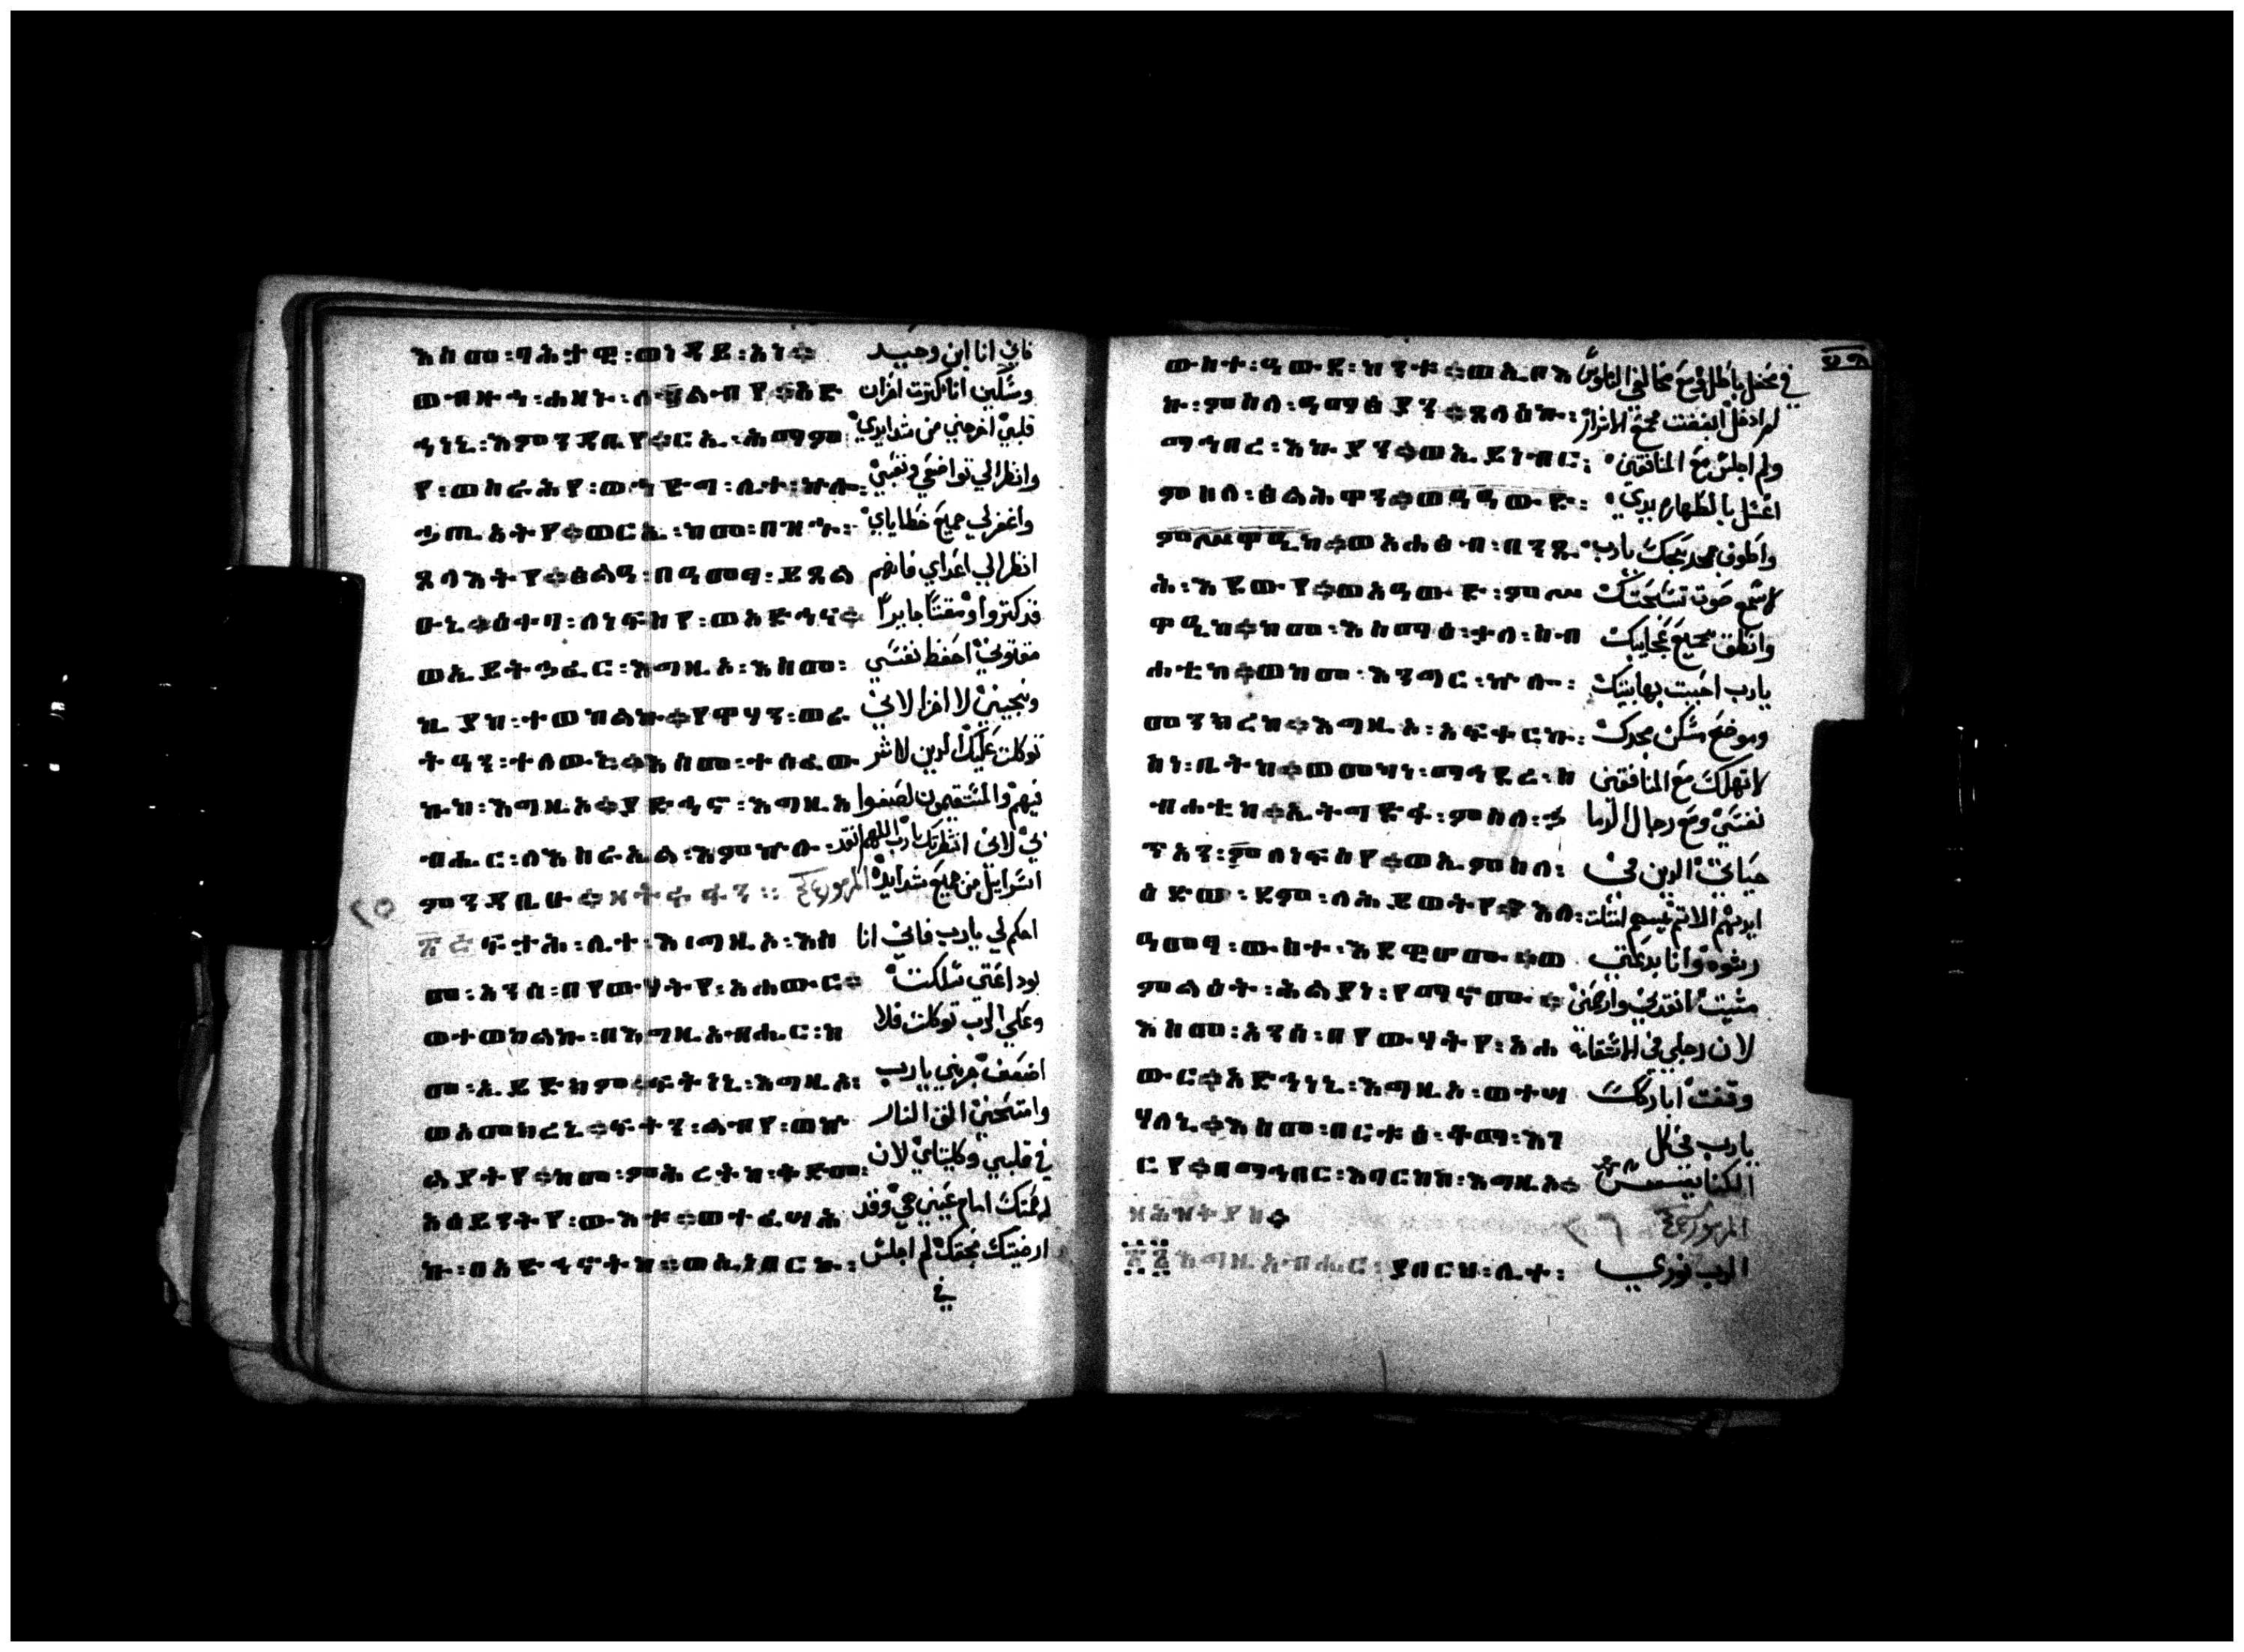 እስመ፡ባሕታዊ፡ወነዳይ፡አነ። فاني انا ابن وحيد
ወብዙኅ፡ሐዘኑ፡ለልብየ።አድ ومسكين انا كثرت احزان
ኅነኒ፡እምንዳቤየ።ርኢ፡ሕማም قلبي اخرجني من شدايدي
የ፡ወስራሕየ፡ወኅድግ፡ሊተ፡ኵሎ፡ وانظر الي تواضعي وتعبي
ኃጢአትየ።ወርኢ፡ከመ፡በዝኁ፡ واغفر لي جميع خطاياي
ጸላእትየ።ፅልዓ፡በዓመፃ፡ይጸል انظر الي اعداي فانهم
ዑኒ።ዕቀባ፡ለነፍስየ፡ወአድኅና። قد كثروا ومقتًا جايرًا
ወኢይትኃፈር፡እግዚኦ፡እስመ፡ مقتوني احفظ نفسي
ኪያከ፡ተወከልኩ።የዋሃን፡ወራ ونجيني لا اخزا لاني
ትዓን፡ተለውዉኒ።እስመ፡ተሰፈው توكلت عليك الدين لا شر
ኩከ፡እግዚኦ።ያድኅኖ፡እግዚአ فيهم والمستقيمون لصقوا
ብሔር፡ለእስራኤል፡እምኵሉ፡ بي لاني انتظرتك يا رب اللهم انقد
ምንዳቤሁ። اسراييل من جميع شدايده المزمور
፳፭ ፍታሕ፡ሊተ፡እግዚኦ፡እስ احكم لي يا رب فاني انا
መ፡አንሰ፡በየውሃትየ፡አሐውር። بوداعتي سلكت
ወተወከልኩ፡በእግዚአብሔር፡ከ وعلي الرب توكلت فلا
መ፡ኢይድክም።ፍትነኒ፡እግዚኦ፡ اضعف جربني يا رب
ወአመክረኒ።ፍተን፡ልብየ፡ወኵ وامتحني القي النار
ልያትየ።ከመ፡ምሕረትከ፡ቅድመ፡ في قلبي وكليتاي لان
አዕይንትየ፡ውእቱ።ወተፈሣሕ رحمتك امام عيني هي وقد
ኩ፡በአድኅኖትከ።ወኢነበርኩ፡ ارضيتك بحقك لم اجلس
في
ውስተ፡ዓውደ፡ከንቱ።ወኢቦእ في محفل باطل ومع مخالفي الناموس
ኩ፡ምስለ፡ዓማፅያን።ጸላዕኩ፡ لم ادخل ابغضت مجمع الاشرار
ማኅበረ፡እኩያን።ወኢይነብር፡ ولم اجلس مع المنافقين
ምስለ፡ፅልሕዋን። اغسل بالطهاره يدي
ወአሐፅብ፡በንጹ واطوف بمدبحك يا رب
ሕ፡እደውየ።ወአዓውድ፡ምሥ لاسمع صوت تسبحتك
ዋዒከ።ከመ፡እስማዕ፡ቃለ፡ስብ وانطق بجميع عجايبك
ሐቲከ።ወከመ፡እንግር፡ኵሎ፡ يا رب احببت بها بيتك
መንክረከ።እግዚኦ፡አፍቀርኩ፡ وموضع مسكن مجدك
ስነ፡ቤትከ።ወመካነ፡ማኅደረ፡ስ لا تهلك مع المنافقين
ብሐቲከ።ኢትግድፋ፡ምስለ፡ኃ نفسي ومع رجال الدما
ጥአን፡ለነፍስየ።ወኢምስለ፡ حياتي الدين في
ዕድወ፡ደም፡ለሕይወትየ።እለ፡ ايديهم الاتم
ዓመፃ፡ውስተ፡እደዊሆሙ።ወ رشوه وانا بدعتي
ምልዕት፡ሕልያነ፡የማኖሙ። مشيت انقدني وارحمني
እስመ፡አንሰ፡በየውሃትየ፡አሐ لان رجلي في الاستقامة
ውር።አድኅነኒ፡እግዚኦ፡ወተሣ وقفت اباركك
ሃለኒ።እስመ፡በርቱዕ፡ቆማ፡እገ يا رب في كل
ርየ።በማኅበር፡እባርከከ፡እግዚኦ። الكنايس
المزمور
፳፮ እግዚአብሔር፡ያበርህ፡ሊተ፡ الرب نوري